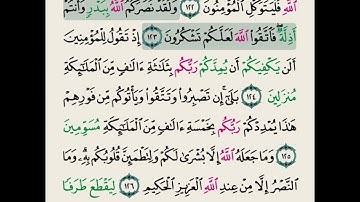 ٱللَّهِ فَلْيَتَوَكَّلِ ٱلْمُؤْمِنُونَ ١٢٢ وَلَقَدْ نَصَرَكُمُ ٱللَّهُ بِبَدْرٍ وَأَنتُمْ
أَذِلَّةٌ فَٱتَّقُوا۟ ٱللَّهَ لَعَلَّكُمْ تَشْكُرُونَ ١٢٣ إِذْ تَقُولُ لِلْمُؤْمِنِينَ
أَلَن يَكْفِيَكُمْ أَن يُمِدَّكُمْ رَبُّكُم بِثَلَٰثَةِ ءَالَٰفٍ مِّنَ ٱلْمَلَٰٓئِكَةِ
مُنزَلِينَ ١٢٤ بَلَىٰٓ إِن تَصْبِرُوا۟ وَتَتَّقُوا۟ وَيَأْتُوكُم مِّن فَوْرِهِمْ
هَٰذَا يُمْدِدْكُمْ رَبُّكُم بِخَمْسَةِ ءَالَٰفٍ مِّنَ ٱلْمَلَٰٓئِكَةِ مُسَوِّمِينَ
١٢٥ وَمَا جَعَلَهُ ٱللَّهُ إِلَّا بُشْرَىٰ لَكُمْ وَلِتَطْمَئِنَّ قُلُوبُكُم بِهِۦ وَمَا
ٱلنَّصْرُ إِلَّا مِنْ عِندِ ٱللَّهِ ٱلْعَزِيزِ ٱلْحَكِيمِ ١٢٦ لِيَقْطَعَ طَرَفًا